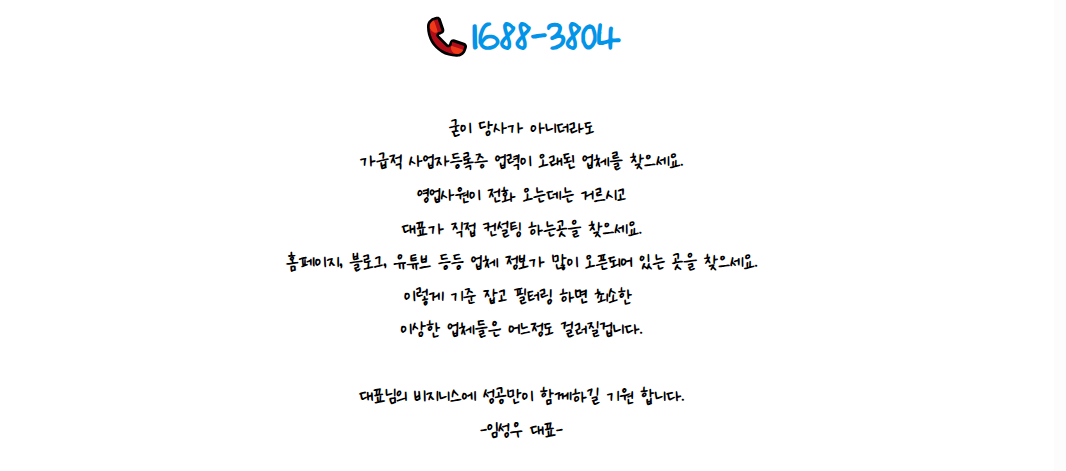 1688-3804
굳이 당사가 아니더라도
가급적 사업자등록증 업력이 오래된 업체를 찾으세요.
영업사원이 전화 오는데는 거르시고
대표가 직접 컨설팅 하는곳을 찾으세요.
홈페이지, 블로그, 유튜브 등등 업체 정보가 많이 오픈되어 있는 곳을 찾으세요.
이렇게 기준 잡고 필터링 하면 최소한
이상한 업체들은 어느정도 걸러질겁니다.
대표님의 비지니스에 성공만이 함께하길 기원 합니다.
-임성우 대표-